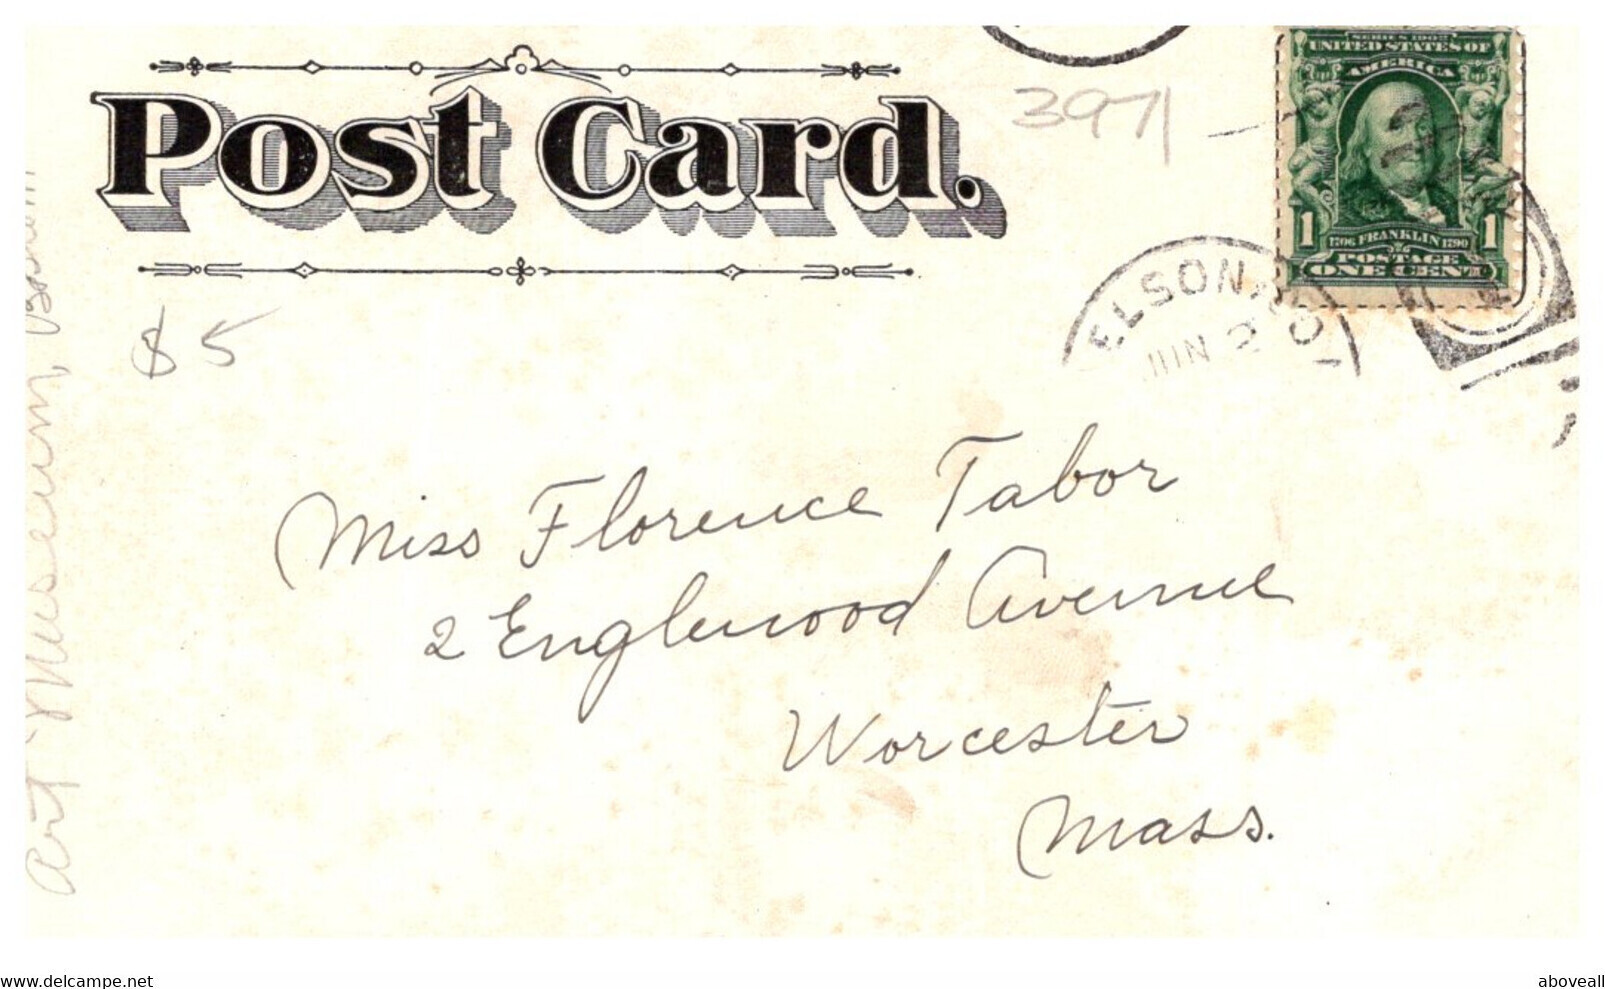 Post Card.
3971
SERIES 1902
UNITED STATES OF
AMERICA
1 1706 FRANKLIN 1790 1
POSTAGE
ONE CENT
ELSON
JUN 2
$5
Miss Florence Tabor
2 Englewood Avenue
Worcester
Mass.
Art Museum, Boston
delcampe.net
aboveall